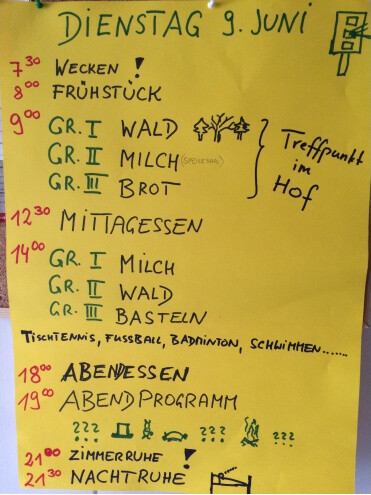 DIENSTAG 9. JUNI
7³⁰ WECKEN !
8⁰⁰ FRÜHSTÜCK
9⁰⁰ GR. I WALD
GR. II MILCH (SPEISESAAL)
GR. III BROT
Treffpunkt im Hof
12³⁰ MITTAGESSEN
14⁰⁰ GR. I MILCH
GR. II WALD
GR. III BASTELN
TISCHTENNIS, FUSSBALL, BADMINTON, SCHWIMMEN......
18⁰⁰ ABENDESSEN
19⁰⁰ ABENDPROGRAMM
??? ??? ???
21⁰⁰ ZIMMERRUHE !
21³⁰ NACHTRUHE